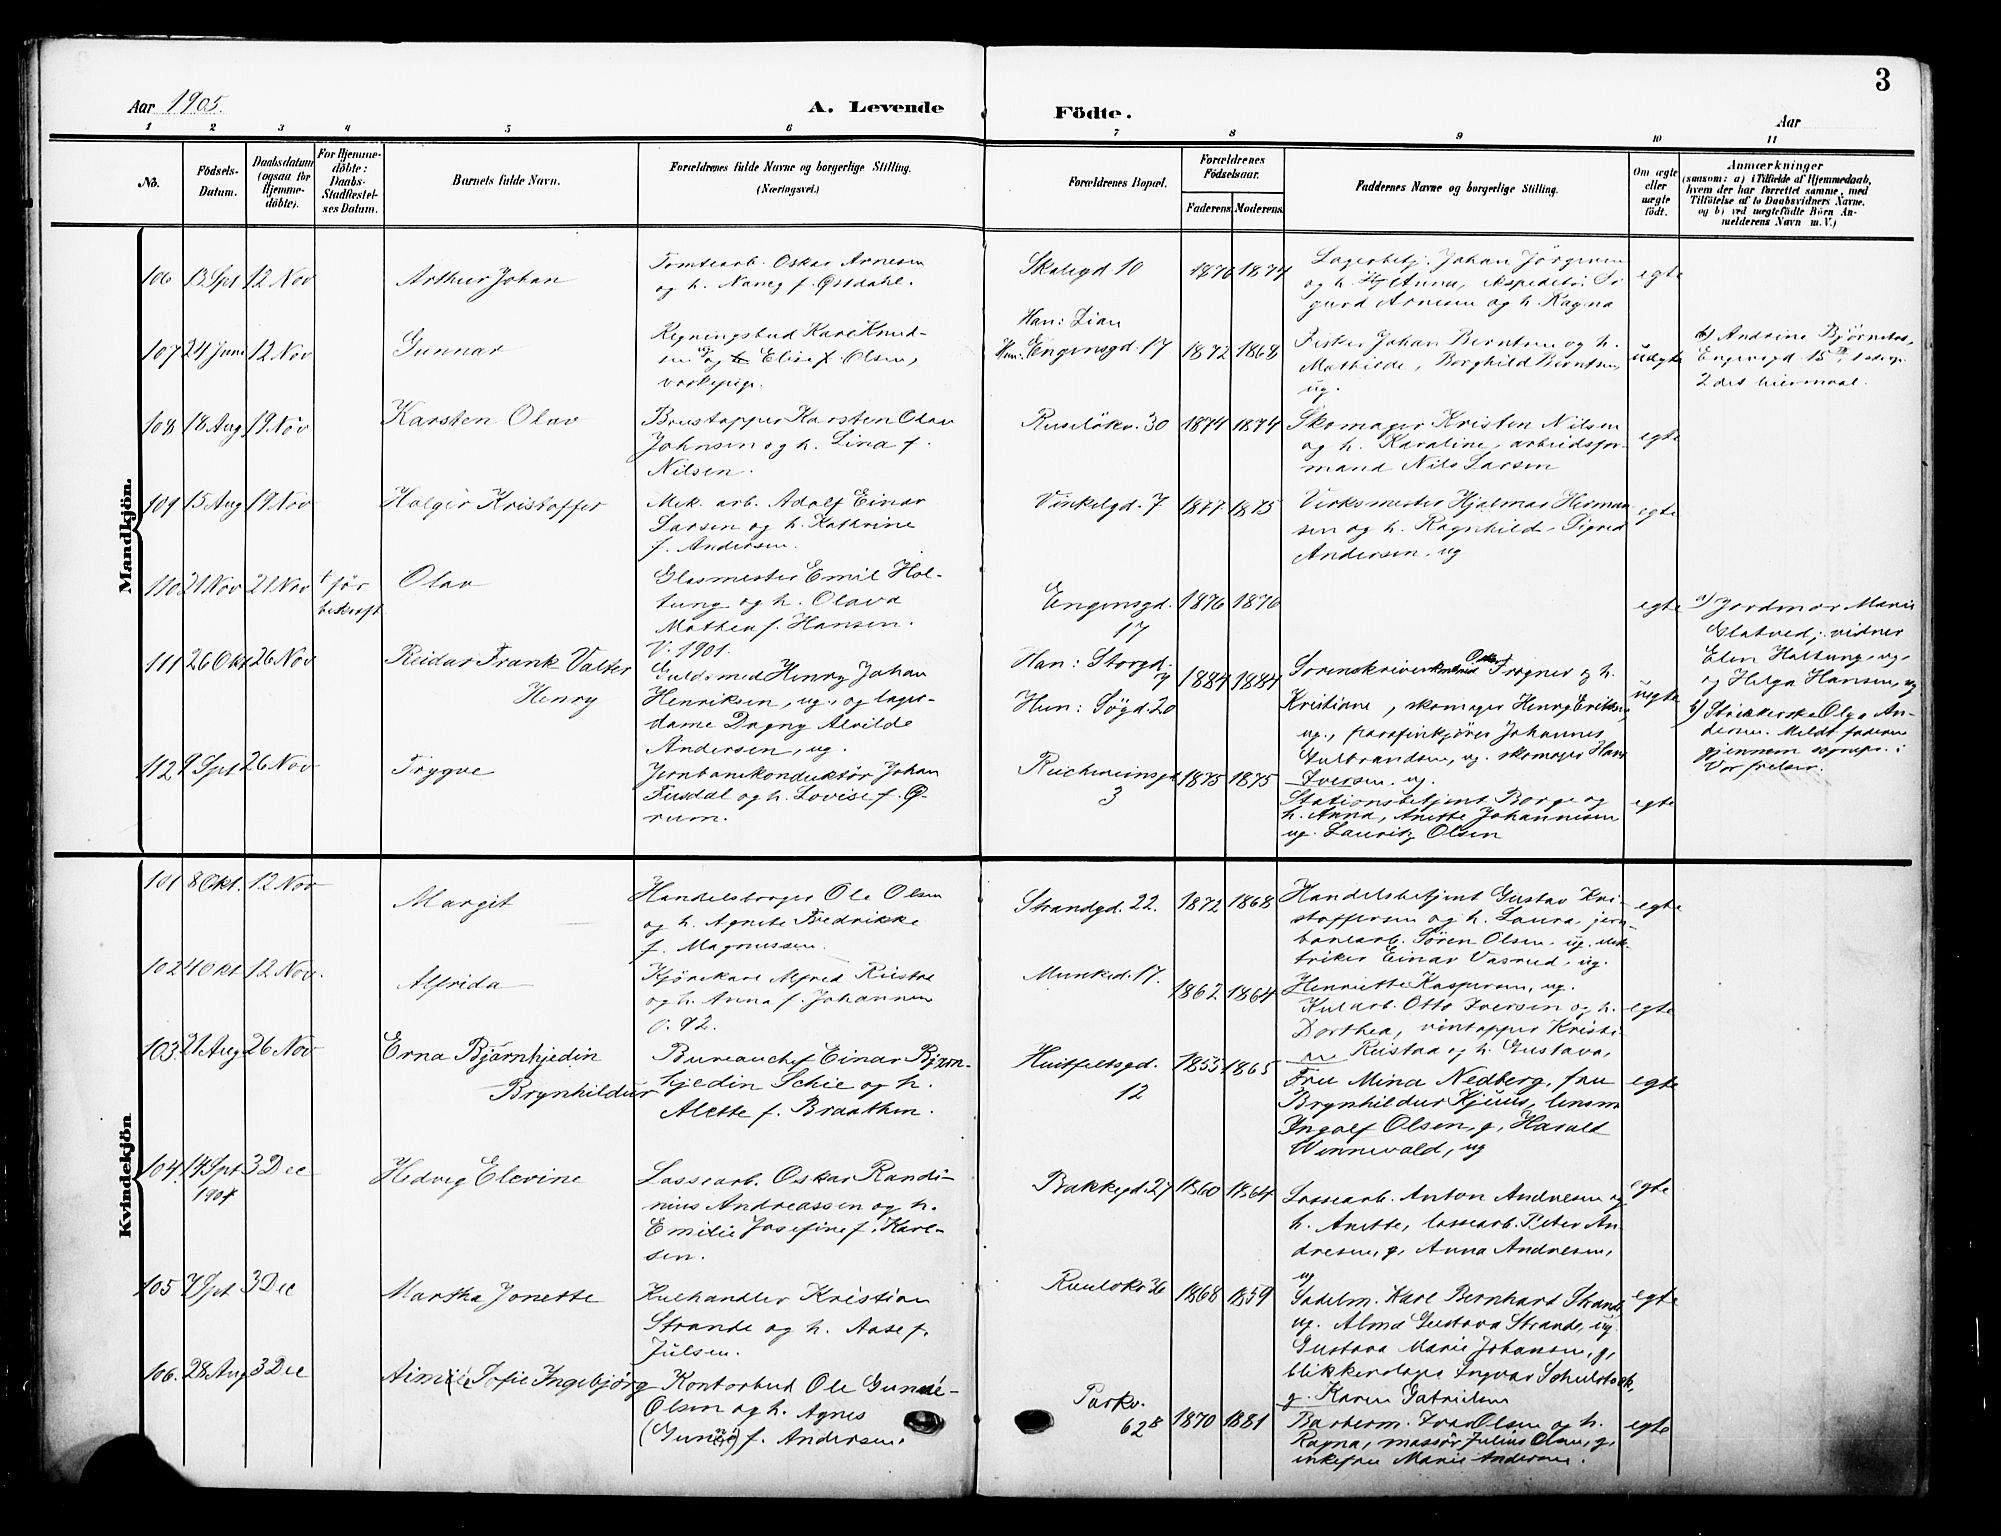 3
Aar 1905.
A. Levende Födte.
Aar
1 2 3 4 5 6 7 8 9 10 11
No.
Födsels-Datum.
Daabsdatum (ogsaa for Hjemme-döbte).
For Hjemme-döbte: Daabs-Stadfæstel-ses Datum.
Barnets fulde Navn.
Forældrenes fulde Navne og borgerlige Stilling. (Næringsvei.)
Forældrenes Bopæl.
Forældrenes Födselsaar.
Faderens Moderens
Faddernes Navne og borgerlige Stilling.
Om ægte eller uægte födt.
Anmærkninger
(saasom: a) i Tilfælde af Hjemmedaab,
hvem der har forrettet samme, med
Tilföielse af to Daabsvidners Navne.
og b) ved uægtefödte Börn An-
melderens Navn m. V.)
Mandkjön.
106 13 Spt 12 Nov
Arthur Johan
Tomtearb. Oskar Arnesen
og h. Nancy f. Østdahl.
Skolegd 10
1870 1874
Lagerbetj. Johan Jörgensen
og h. Anna, ekspeditör Si-
gurd Arnesen og h. Ragna
egte
107 24 Juni 12 Nov
Gunnar
Regningsbud Karl Knud-
sen og Elise f. Olsen,
vaskepige.
Han: Lian
Hun: Engensgd. 17
1872 1868
Fisker Johan Berntsen og h.
Mathilde, Borghild Berntsen,
ug.
uegte
b) Andrine Björnstad,
Engensgd. 15
2det leiermaal.
108 18 Aug 19 Nov
Karsten Olav
Brustapper Karsten Olav
Johnsen og h. Lina f.
Nilsen.
Ruselökv. 30
1874 1874
Skomager Kristen Nilsen
og h. Karaline, arbeidsfor-
mand Nils Larsen
egte
109 15 Aug 19 Nov
Holger Kristoffer
Mek. arb. Adolf Einar
Larsen og h. Kathrine
f. Andersen.
Vinkelgd. 7
1877 1875
Verksmester Hjalmar Herman
sen og h. Ragnhild, Sigrid
Andersen, ug
egte
110 21 Nov 21 Nov † før bekræft
Olav
Glasmester Emil Hol-
tung og h. Olava
Mathea f. Hansen.
V. 1901.
Engensgd. 17
1876 1870
egte
a) Jordmor Marie
Slatved; vidner
Elen Holtung, ug,
og Helga Hansen, ug
111 26 Okt 26 Nov
Reidar Frank Valter
Henry
Guldsmed Henry Johan
Henriksen, ug., og lager-
dame Dagny Alvilde
Andersen, ug.
Han: Storgd. 7
Hun: Søgd. 20
1884 1884
Sorenskriver Frogner & h.
Kristiane, skomager Henry Eriksen,
ug., parafinkjörer Johannes
Gulbrandsen, ug. skomager Hans
Iversen, ug.
uegte
b) Strikkerske Olga An-
dersen. Meldt faderen
gjennem sogneprs. i
Vor frelser.
112 9 Spt 26 Nov
Trygve
Jernbanekonduktör Johan
Fusdal og h. Lovise f. G-
rum.
Richmeinsgd 3
1875 1875
Stationsbetjent Borge og
h. Anna, Anette Johannesen
ug. Lauritz Olsen
egte
Kvindekjön
101 8 Okt. 12 Nov
Margit
Handelsborger Ole Olsen
og h. Agnete Fredrikke
f. Magnussen.
Strandgd. 22.
1872 1868
Handelsbetjent Gustav Kri-
stoffersen og h. Laura, jern-
banearb. Sören Olsen, ug. elek-
triker Einar Vasrud, ug.
egte
102 4 Okt 12 Nov.
Alfrida
Kjörekarl Alfred Rustad
og h. Anna f. Johannesen
v. 92.
Munked. 17.
1862 1864
Henriette Kaspersen, ug.
Kularb. Otto Iversen og h.
Dorthea, vintapper Kristi-
an Rustad og h. Gustava,
egte
103. 21 Aug 26 Nov
Erna Bjarnhjedin
Brynhildur
Bureauchef Einar Bjarn-
hjedin Schie og h.
Alette f. Braathen.
Huitfeltsgd. 12
1853 1865
Fru Mina Nedberg, fru
Brynhildur Kjuus, lensm
Ingolf Olsen, g, Harald
Winnewald, ug
egte
104. 14 Spt 1904 3 Dec
Hedvig Elevine
Lossearb. Oskar Randi-
nius Andreassen og h.
Emilie Josefine f. Karl-
sen.
Bakkegd. 27
1860 1864
Lossearb. Anton Andresen og
h. Anette, lossearb. Peter An-
dresen, g, Anna Andresen,
ug
egte
105 7 Spt 3 Dec
Martha Jonette
Kulhandler Kristian
Strande og h. Aase f.
Julsen.
Ruselökv 36
1868 1859
Sadelm. Karl Bernhard Strande
ug. Alma Gustava Strande, ug.
Gustava Marie Johansen, g,
blikkenslager Ingvar Schulstock,
g. Karen Gabrielsen
egte
106. 28 Aug 3 Dec
Aimée Sofie Ingebjörg
Kontorbud Ole Gunne-
Olsen og h. Agnes
f. Andersen.
Parkv. 62
1870 1881
Barberm. Ivar Olsen og h.
Ragna, massör Julius Olsen, g,
enkefru Marie Andersen.
egte